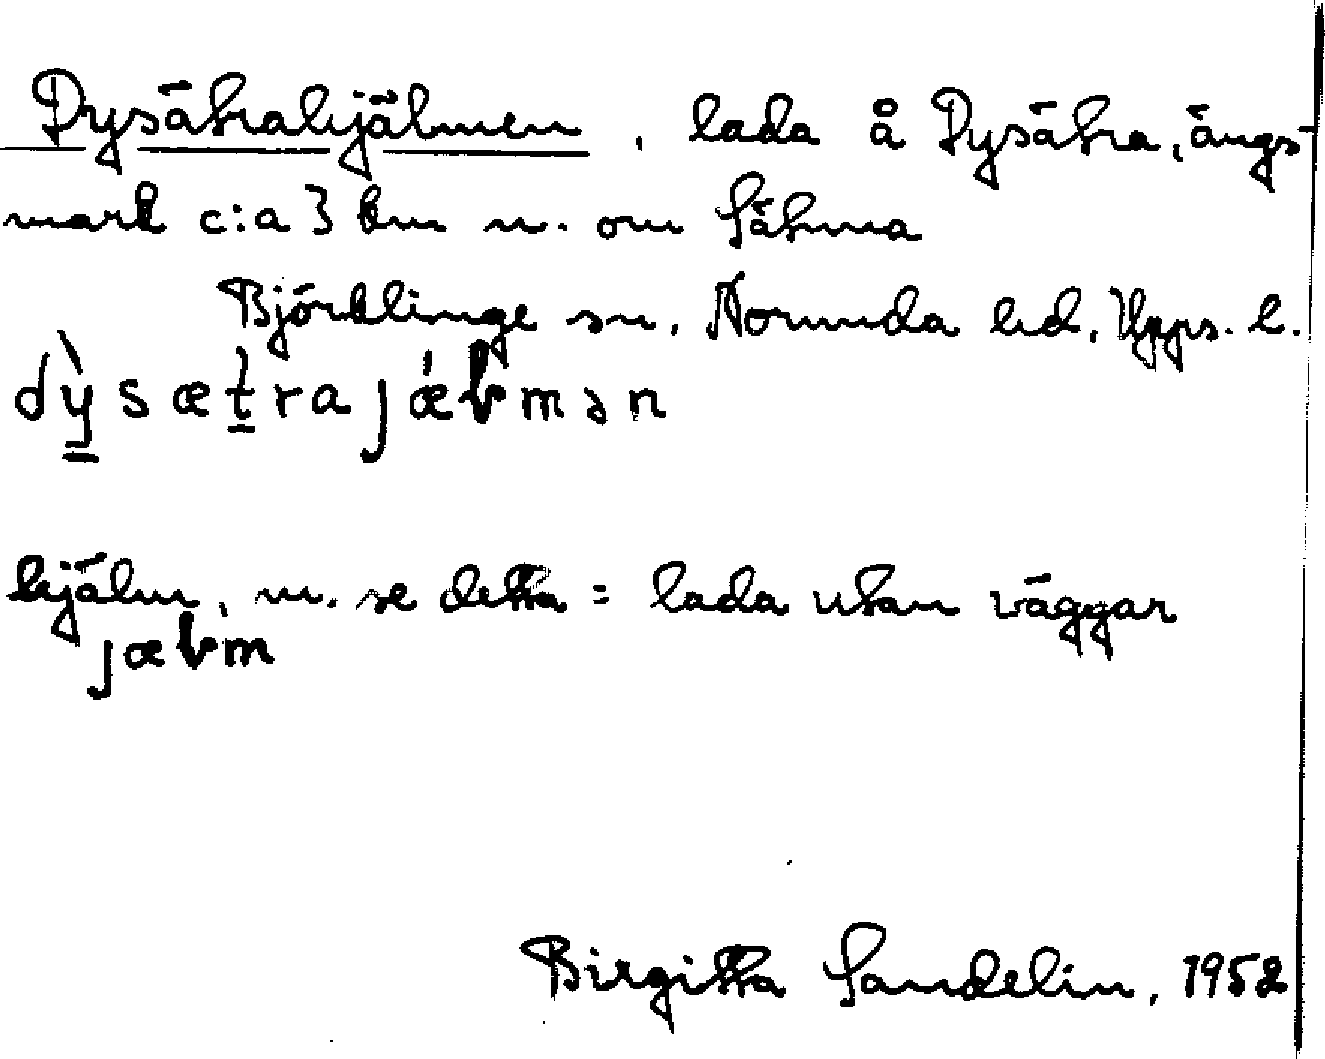 Dysätrahjälmen, lada å Dysätra, ängs-
mark c:a 3 km n. om Sätuna
Björklinge sn, Norunda hd, Upps. l.
dỳ̠sætrajǽɽmən
hjälm, m. se detta = lada utan väggar
jæɽm
Birgitta Sandelin, 1952